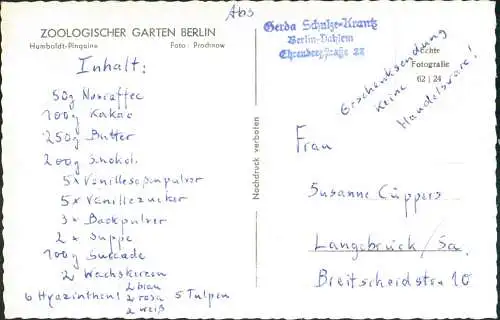 Abs
ZOOLOGISCHER GARTEN BERLIN
Humboldt-Pinguine Foto: Prochnow
Inhalt:
50g Nescaffee
100g Kakao
250g Butter
200g Schokol.
5x Vanillesoßenpulver
5x Vanillezucker
3x Backpulver
2x Suppe
100g Succade
2 Wachskerzen
6 Hyazinthen! 2 blau 5 Tulpen
2 rosa
2 weiß
Nachdruck verboten
Gerda Schulze-Krantz
Berlin-Dahlem
Ehrenbergstraße 27
Echte
Fotografie
62 | 24
Geschenksendung
Keine
Handelsware!
Frau
Susanne Cüppers
Langebrück/Sa.
Breitscheidstr. 10